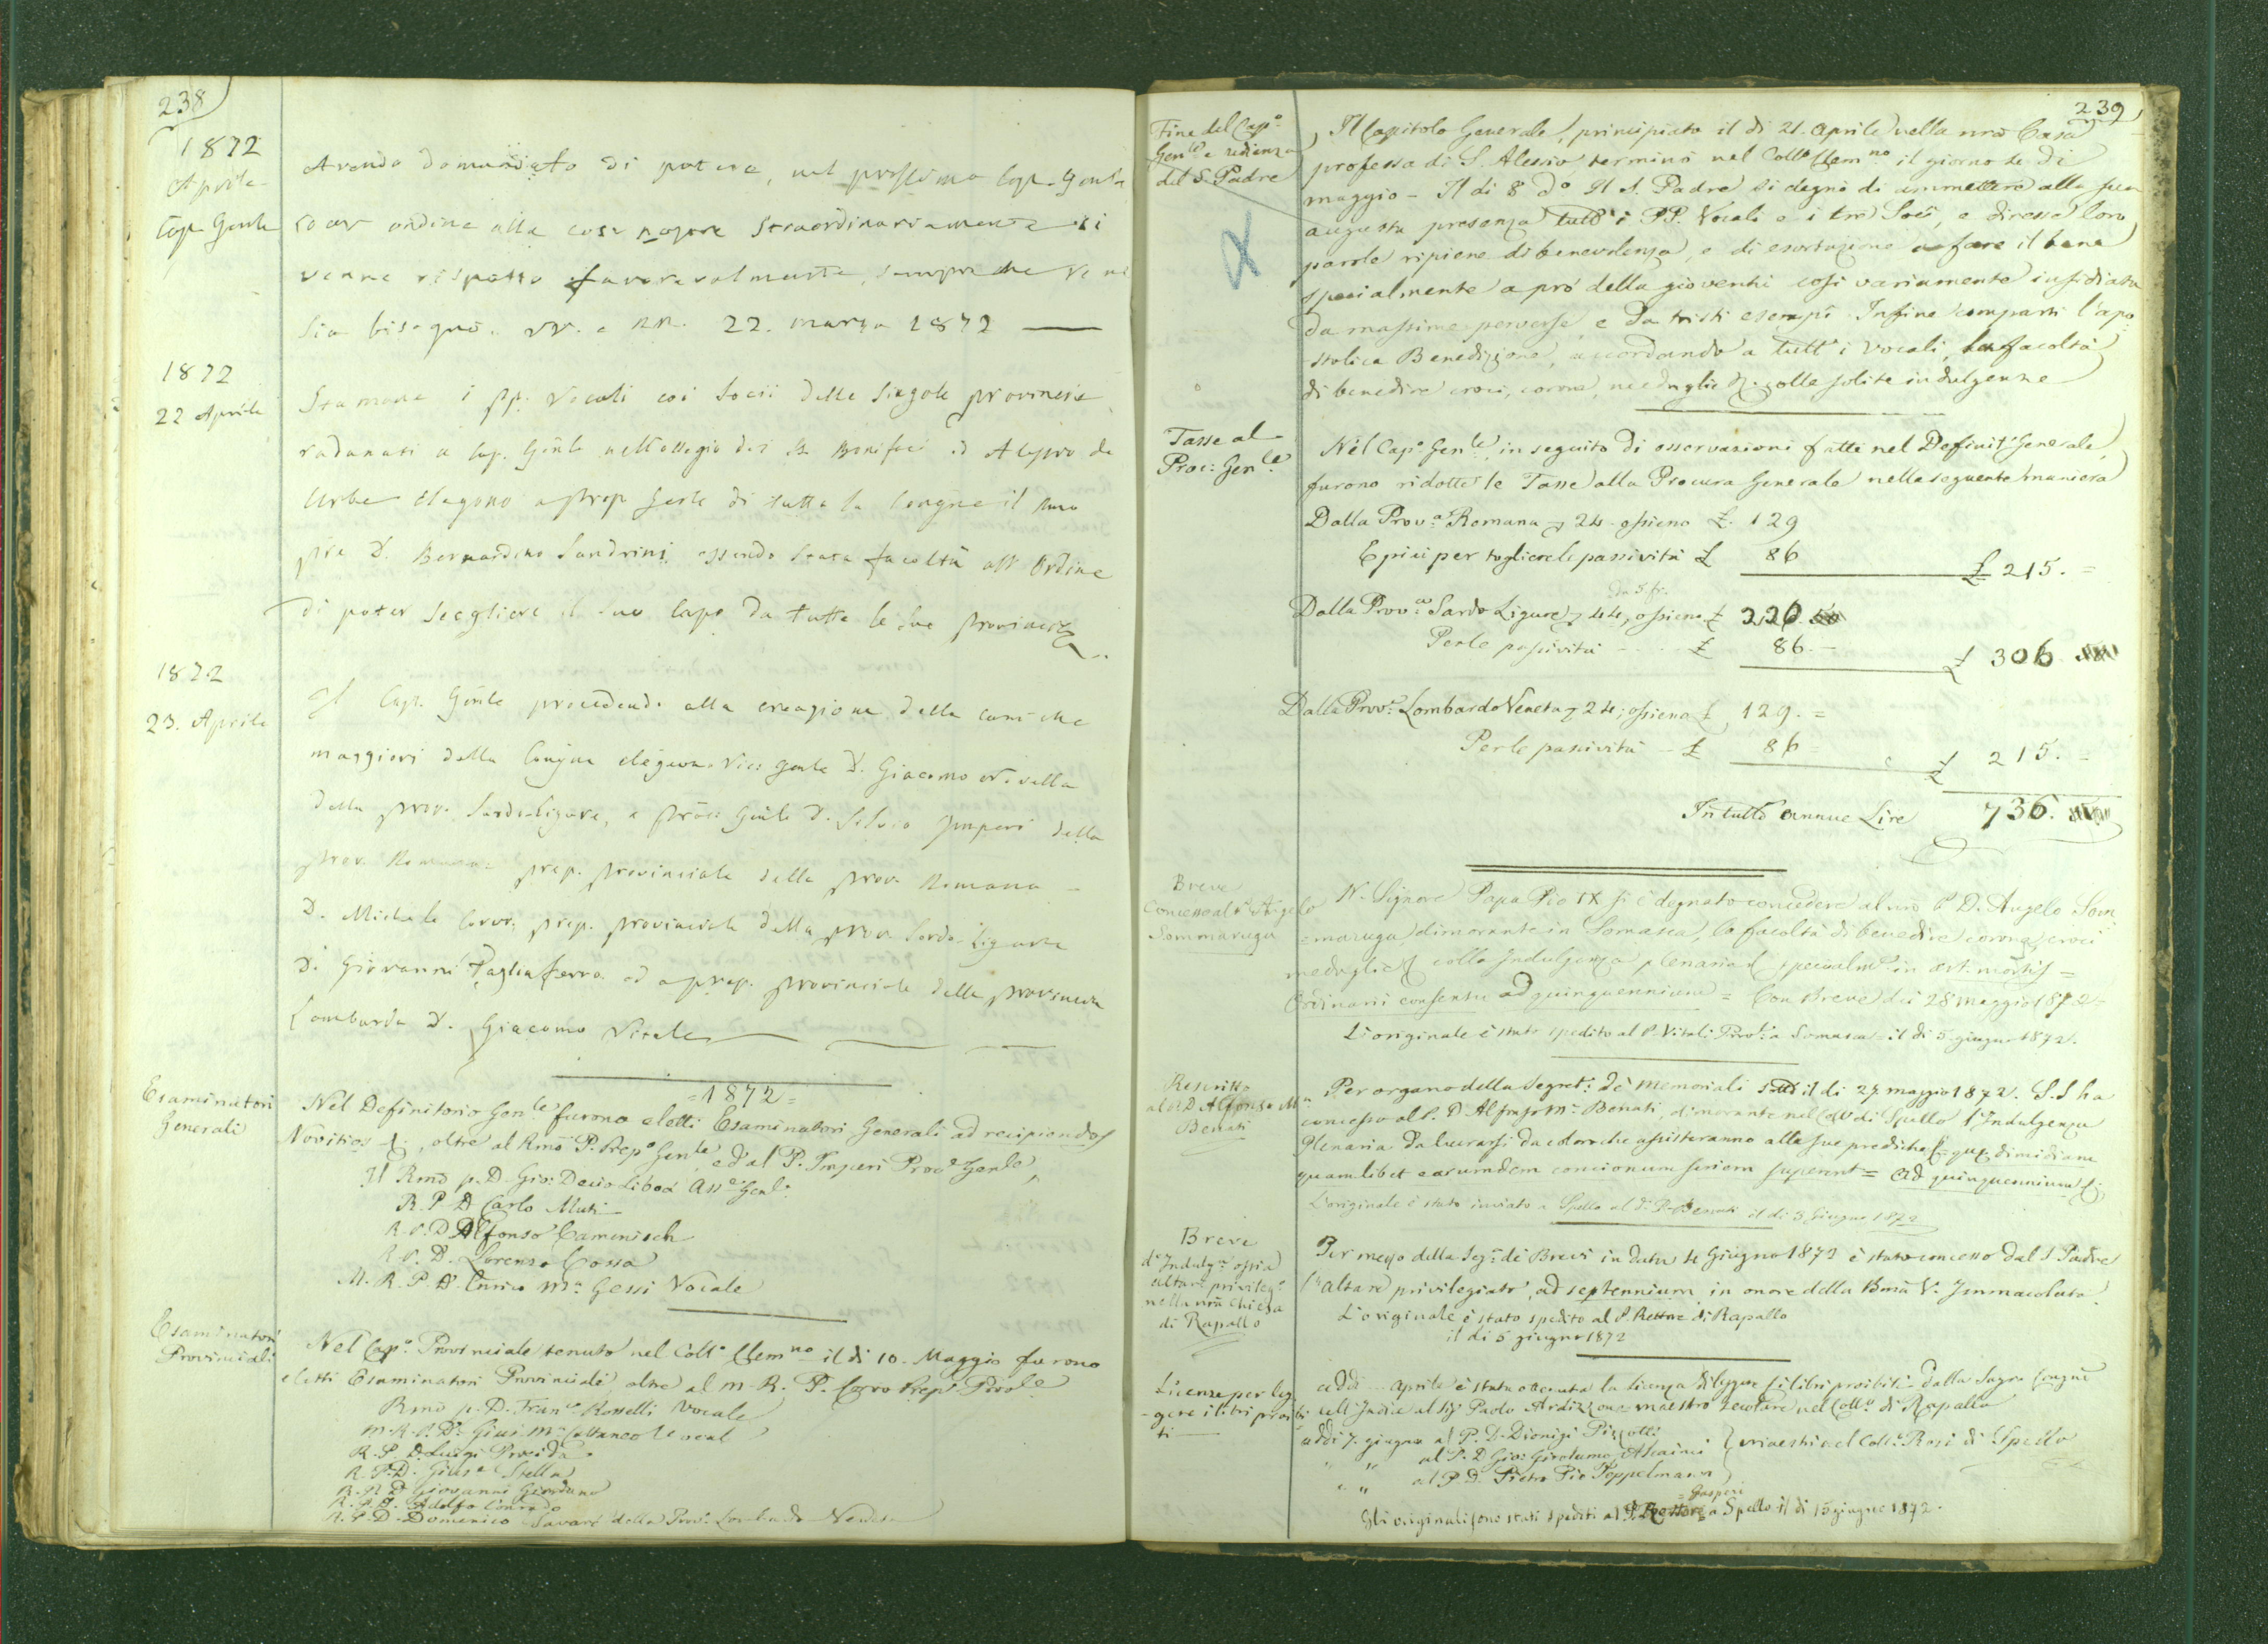 238
1872
Aprile
Cap. Genle
Avendo domandato di potere, nel prossimo Cap. Genle
dar ordine alla cose
venne risposto favorevolmente, sempre che ve ne
sia bisogno. VV. e RR. 22. marzo 1872 —
1872
22 Aprile
Stamane i PP. Vocali coi Socii delle singole provincie
radunati a Cap. Genle nell'ollegio dei SS. Bonifaci ed Alessio de
Urbe elegono a Prep. Genle di tutta la Congne il Rmo
Pre D. Bernardino Sandrini, essendo stata facoltà all'Ordine
di poter scegliere il suo Capo da tutte le sue provincie.
1872
23. Aprile
Il Cap. Genle procedendo alla creazione delle cariche
maggiori della Congne elegeva Vic. Genle D. Giacomo Novella
della prov. Sardo-Ligure, e Proc. Genle D. Silvio Imperi della
prov. Romana prep. provinciale della prov. Romana —
D. Michele Corvo, prep. provinciale della prov. Sardo-Ligure
D. Giovanni Pagliaferro ed a prep. provinciale della provincia
Lombarda D. Giacomo Vitale
=1872=
Esaminatori
Generali
Nel Definitorio Genle furono eletti Esaminatori Generali ad recipiendos
Novitios &, oltre al Rmo P. Prepo Genle, ed al P. Imperi Proc. Genle,
Il Rmo p. D. Gio: Decio Libois Asse Genle
R. P. D. Carlo Muti
R. P. D. Alfonso Caminisch
R. P. D. Lorenzo Cossa
M. R. P. D. Enrico Ma Gessi Vocale
Esaminatori
Provinciali
Nel Capo Provinciale tenuto nel Collo Clemno il dì 10. Maggio furono
eletti Esaminatori Provinciali, oltre al M. R. P. Corvo Prepo Provle
Rmo p. D. Franco Rosselli Vocale
M. R. P. D. Gius. Ma Cattaneo Vocal
R. P. D. Luigi Procida
R. P. D. Giuse Stella
R. P. D. Giovanni Giordano
R. P. D. Adolfo Conrado
R. P. D. Domenico Savarè della Prov. Lombardo-Veneta
239
Fine del Capo
Genle e udienza
del S. Padre
Il Capitolo Generale, principiato il dì 21. Aprile nella nra Casa
professa di S. Alessio, terminò nel Collo Clemno il giorno 4 di
maggio – Il di 8 do Il S. Padre si degnò di ammettere alla sua
augusta presenza tutti i PP. Vocali e i tre Socii, e diresse loro
parole ripiene di benevolenza, e di esortazione a fare il bene
specialmente a prò della gioventù così variamente insidiata
da massime perverse, e da tristi esempi. Infine compartì l'apo-
stolica Benedizione, accordando a tutti i vocali, la facoltà
di benedire croci, corone, medaglie & colle solite indulgenze
Tasse al
Proc: Genle
Nel Capo Genle, in seguito di osservazioni fatte nel Definit. Generale,
furono ridotte le Tasse alla Procura Generale nella seguente maniera
Dalla Prova Romana 24 - ossieno £. 129
E più per togliere le passività £ 86
£ 215. =
da 5 fr.
Dalla Prova Sardo Ligure 44, ossieno £ 220
Per le passività £ 86.
£ 306
Dalla Prova Lombardo Veneta 24; ossieno £ 129. =
Per le passività - £ 86 =
£ 215. =
In tutto annue Lire 736.
Breve
Concesso al P. Angelo
Sommaruga
N. Signore Papa Pio IX si è degnato concedere al nro P. D. Angelo Som-
=maruga, dimorante in Somasca, la facoltà di benedire corone, croci
medaglie & colla Indulgenza plenaria & specialme in art. mortis =
Ordinarii consensu ad quinquennium = Con Breve dei 28 maggio 1872 =
L'originale è stato spedito al P. Vitali Prov. a Somasca = il dì 5. giugno 1872.
Rescritto
al P. D. Alfonso Ma
Benati
Per organo della Segret. de' Memoriali sotto il dì 27 maggio 1872. S. S ha
concesso al P. D. Alfonso Ma Benati, dimorante nel Collo di Spello l'Indulgenza
Plenaria da lucrarsi da coloro che assisteranno alle sue prediche & qui dimidiam
quamlibet earumdem concionum seriem superent = ad quinquennium &
L'originale è stato inviato a Spello al do P. Benati il dì 3 Giugno 1872
Breve
d'Indulgza ossia
altare privilego
nella nra chiesa
di Rapallo
Per mezzo della Sega de' Brevi in data 4 Giugno 1872 è stato concesso dal S. Padre
l'Altare privilegiato, ad septennium, in onore della Bma V. Immacolata.
L'originale è stato spedito al P. Rettore di Rapallo
il di 5 giugno 1872
Licenze per leg-
=gere i libri proibi-
ti
addì ... Aprile è stata ottenuta la licenza di leggere i libri proibiti dalla Sagra Congne
dell'Indice al Sig Paolo Ardizzone maestro secolare nel Collo di Rapallo
addì 7. giugno al P. D. Dionigi Pizzotti
" " al P. D. Gio: Girolamo Alcaini } maestri nel Coll. Rosi di Spello
" " al P. D. Pietro Pio Poppelmann
= Gasperi
Gli originali sono stati spediti al P. Rettore a Spello il dì 15 giugno 1872.